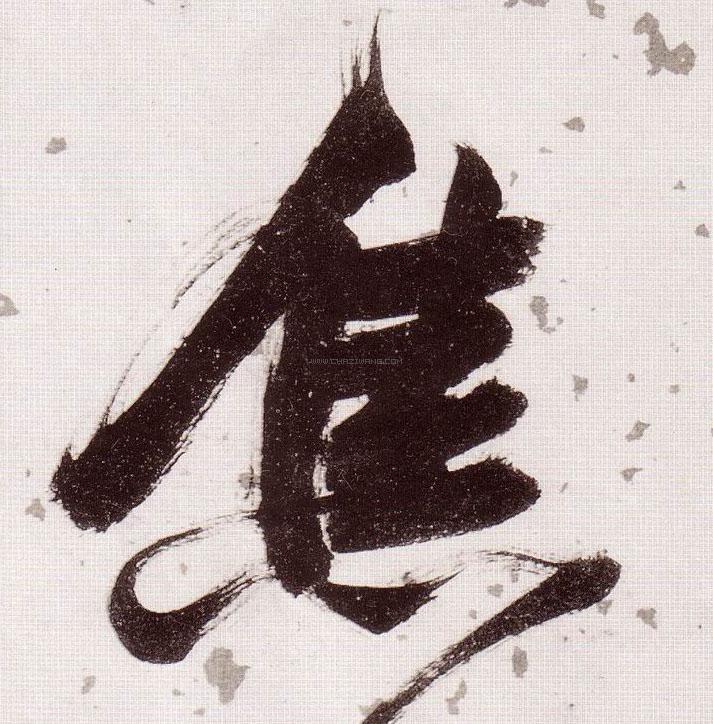 焦
WWW.CHAZIWANG.COM